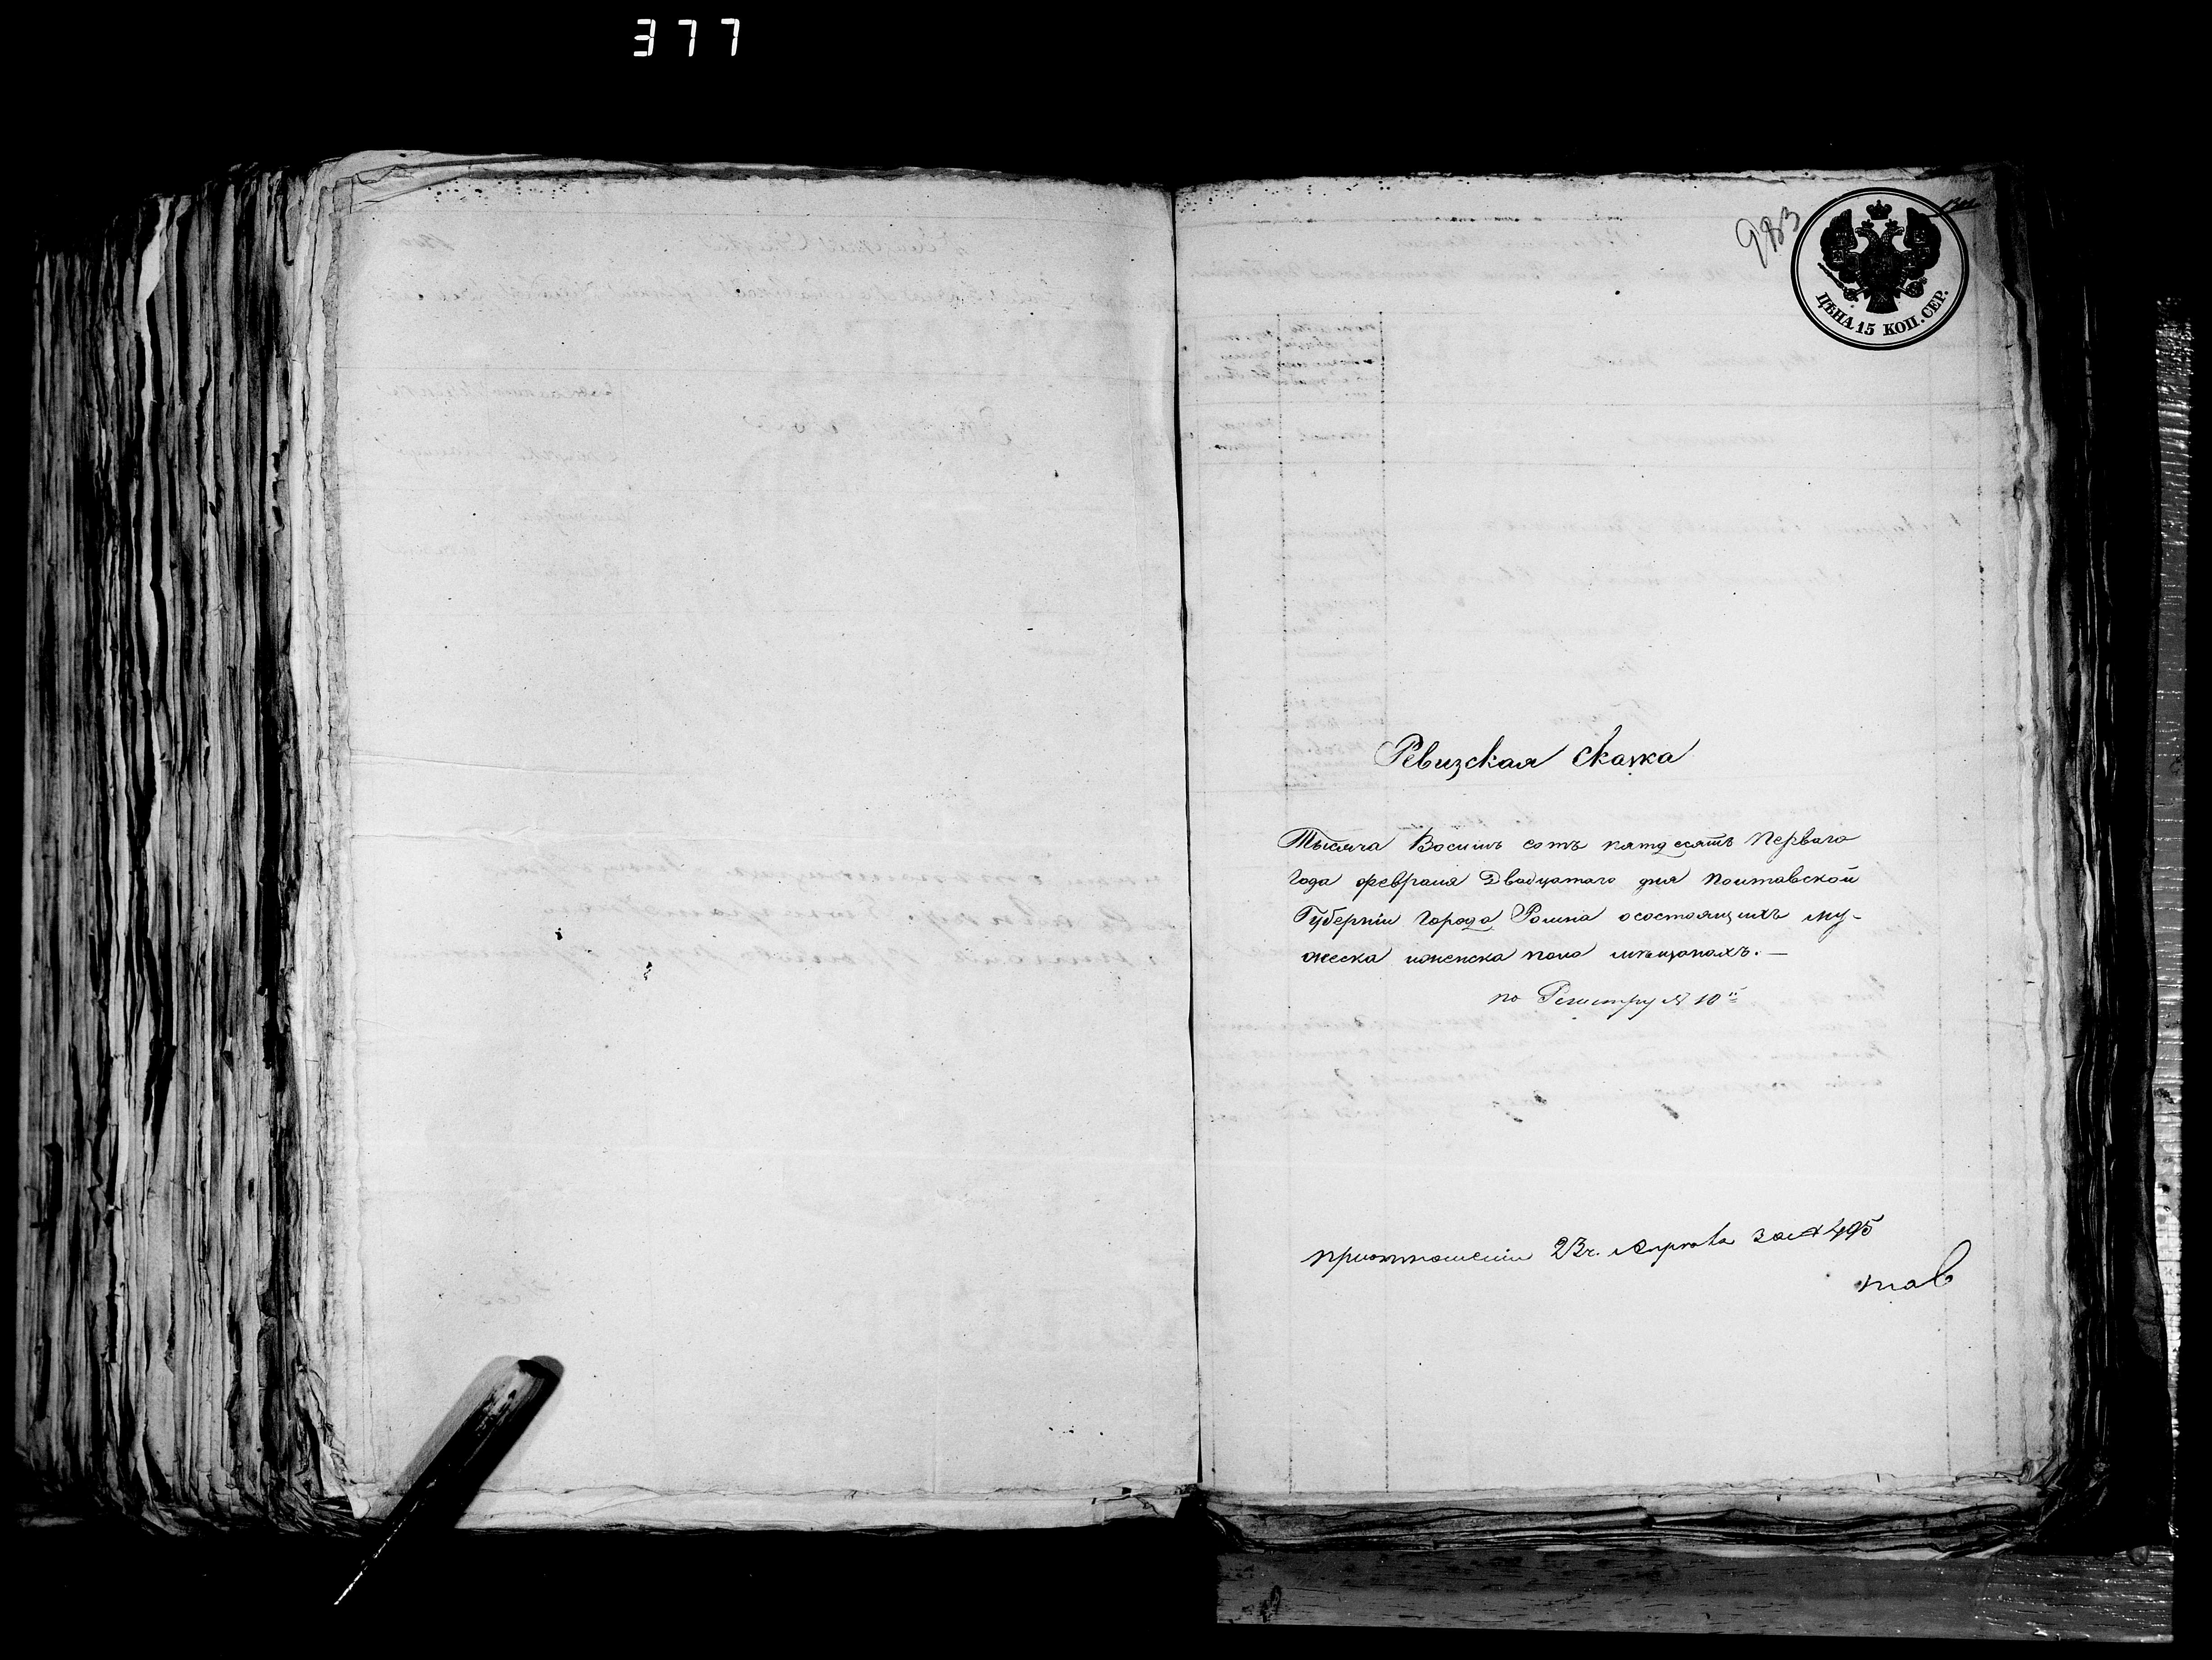 377
983
ЦѢНА 15 КОП. СЕР.
Ревизская Сказка
Тысяча Восимъ сотъ пятдесятъ Перваго
Года февраля Двадцатаго дня Полтавской
Губерніи Города Ромна осостоящихъ му-
жеска иженска пола мѣщанахъ. —
по Регистру № 10й
приотношеніи 23г. марта за № 495